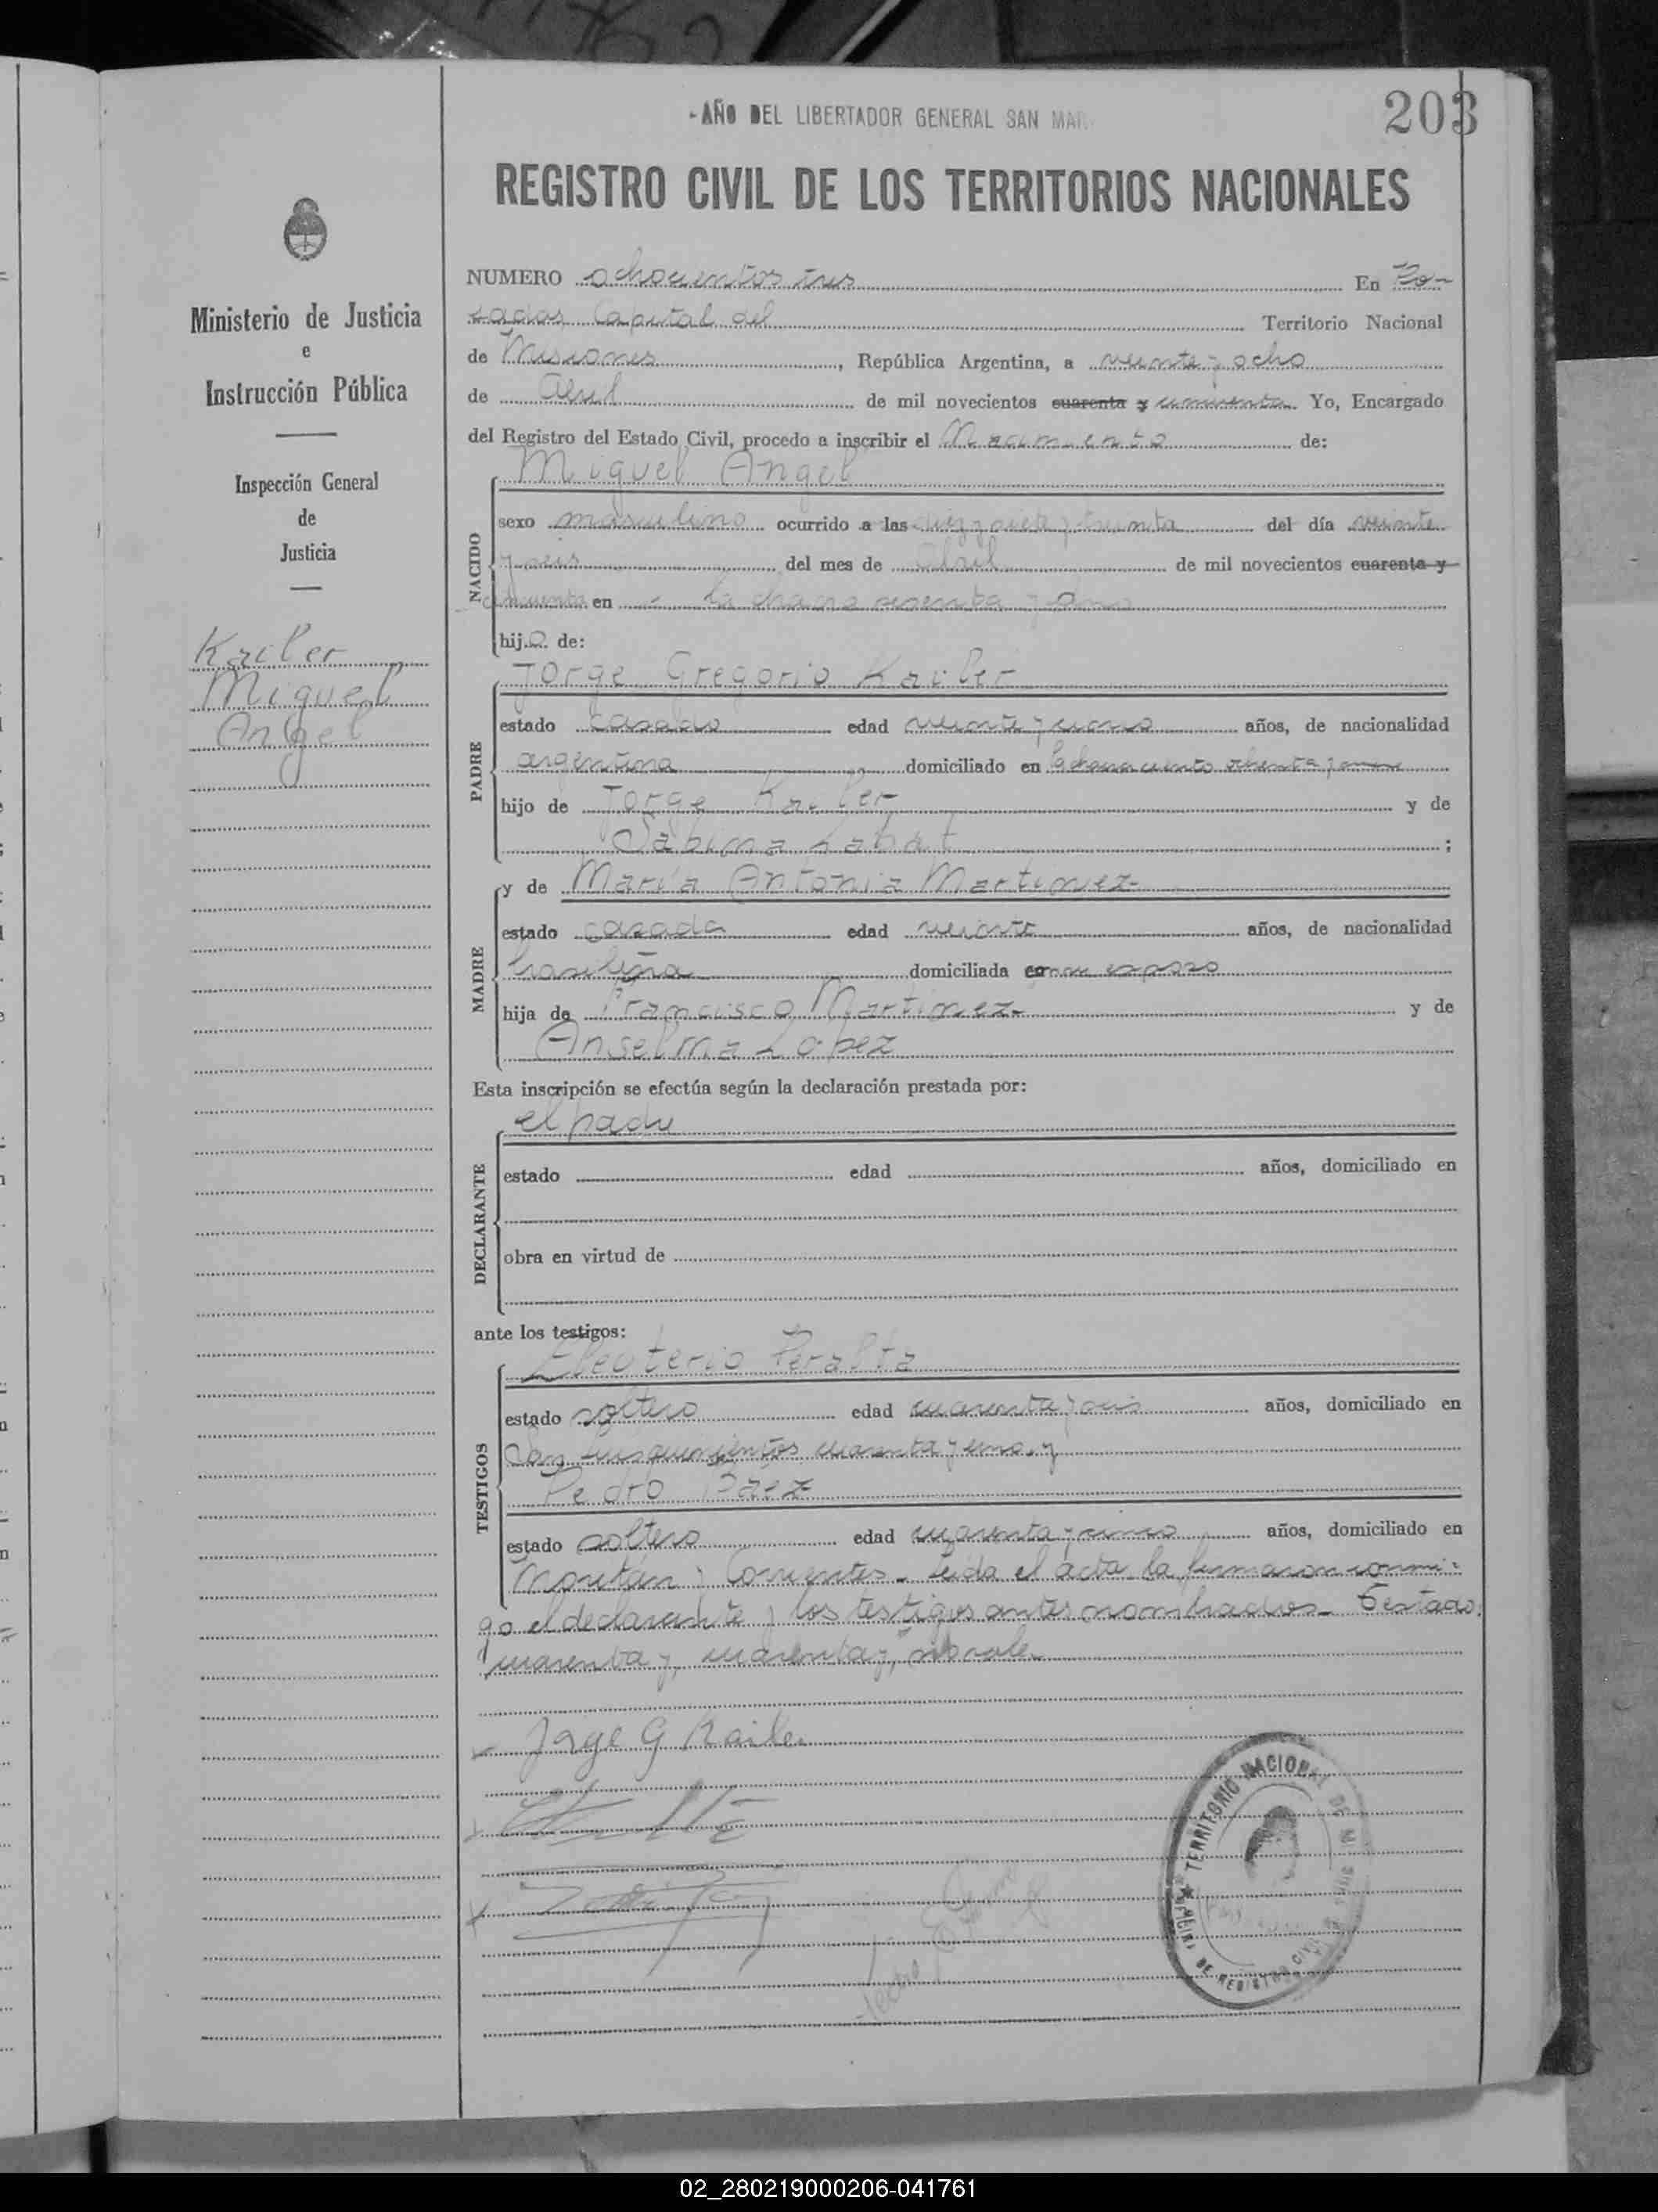 - AÑO DEL LIBERTADOR GENERAL SAN MAR
203
REGISTRO CIVIL DE LOS TERRITORIOS NACIONALES
Ministerio de Justicia
e
Instrucción Pública
Inspección General
de
Justicia
Kailer
Miguel
Angel
NUMERO ochocientos tres En Po-
sadas, Capital del Territorio Nacional
de Misiones, República Argentina, a veinte y ocho
de Abril de mil novecientos cuarenta y cincuenta. Yo, Encargado
del Registro del Estado Civil, procedo a inscribir el Nacimiento de:
NACIDO
Miguel Angel
sexo masculino ocurrido a las diez y siete y treinta del día veinte
y seis del mes de Abril de mil novecientos cuarenta y
cincuenta en la chacra sesenta y
hijo de:
PADRE
Jorge Gregorio Kailer
estado casado edad veinte y años, de nacionalidad
argentina domiciliado en la chacra ciento ochenta y
hijo de Jorge Kailer y de
Sabina Labat;
MADRE
y de María Antonia Martinez-
estado casada edad veinte años, de nacionalidad
brasileña domiciliada con su esposo
hija de Francisco Martinez- y de
Anselma López
Esta inscripción se efectúa según la declaración prestada por:
DECLARANTE
el padre
estado edad años, domiciliado en
obra en virtud de
ante los testigos:
TESTIGOS
Eleuterio Peralta
estado soltero edad cuarenta y seis años, domiciliado en
quinientos cuarenta y uno, y
Pedro Báez
estado soltero edad cuarenta y cinco años, domiciliado en
y Corrientes- Leída el acta la firmaron conmi-
go el declarante y los testigos antes nombrados- Testado:
"cuarenta y, cuarenta y", no vale-
Jorge G Kailer
TERRITORIO NACIONAL DE MISIONES
OFICINA DE REGISTRO CIVIL
02_280219000206-041761